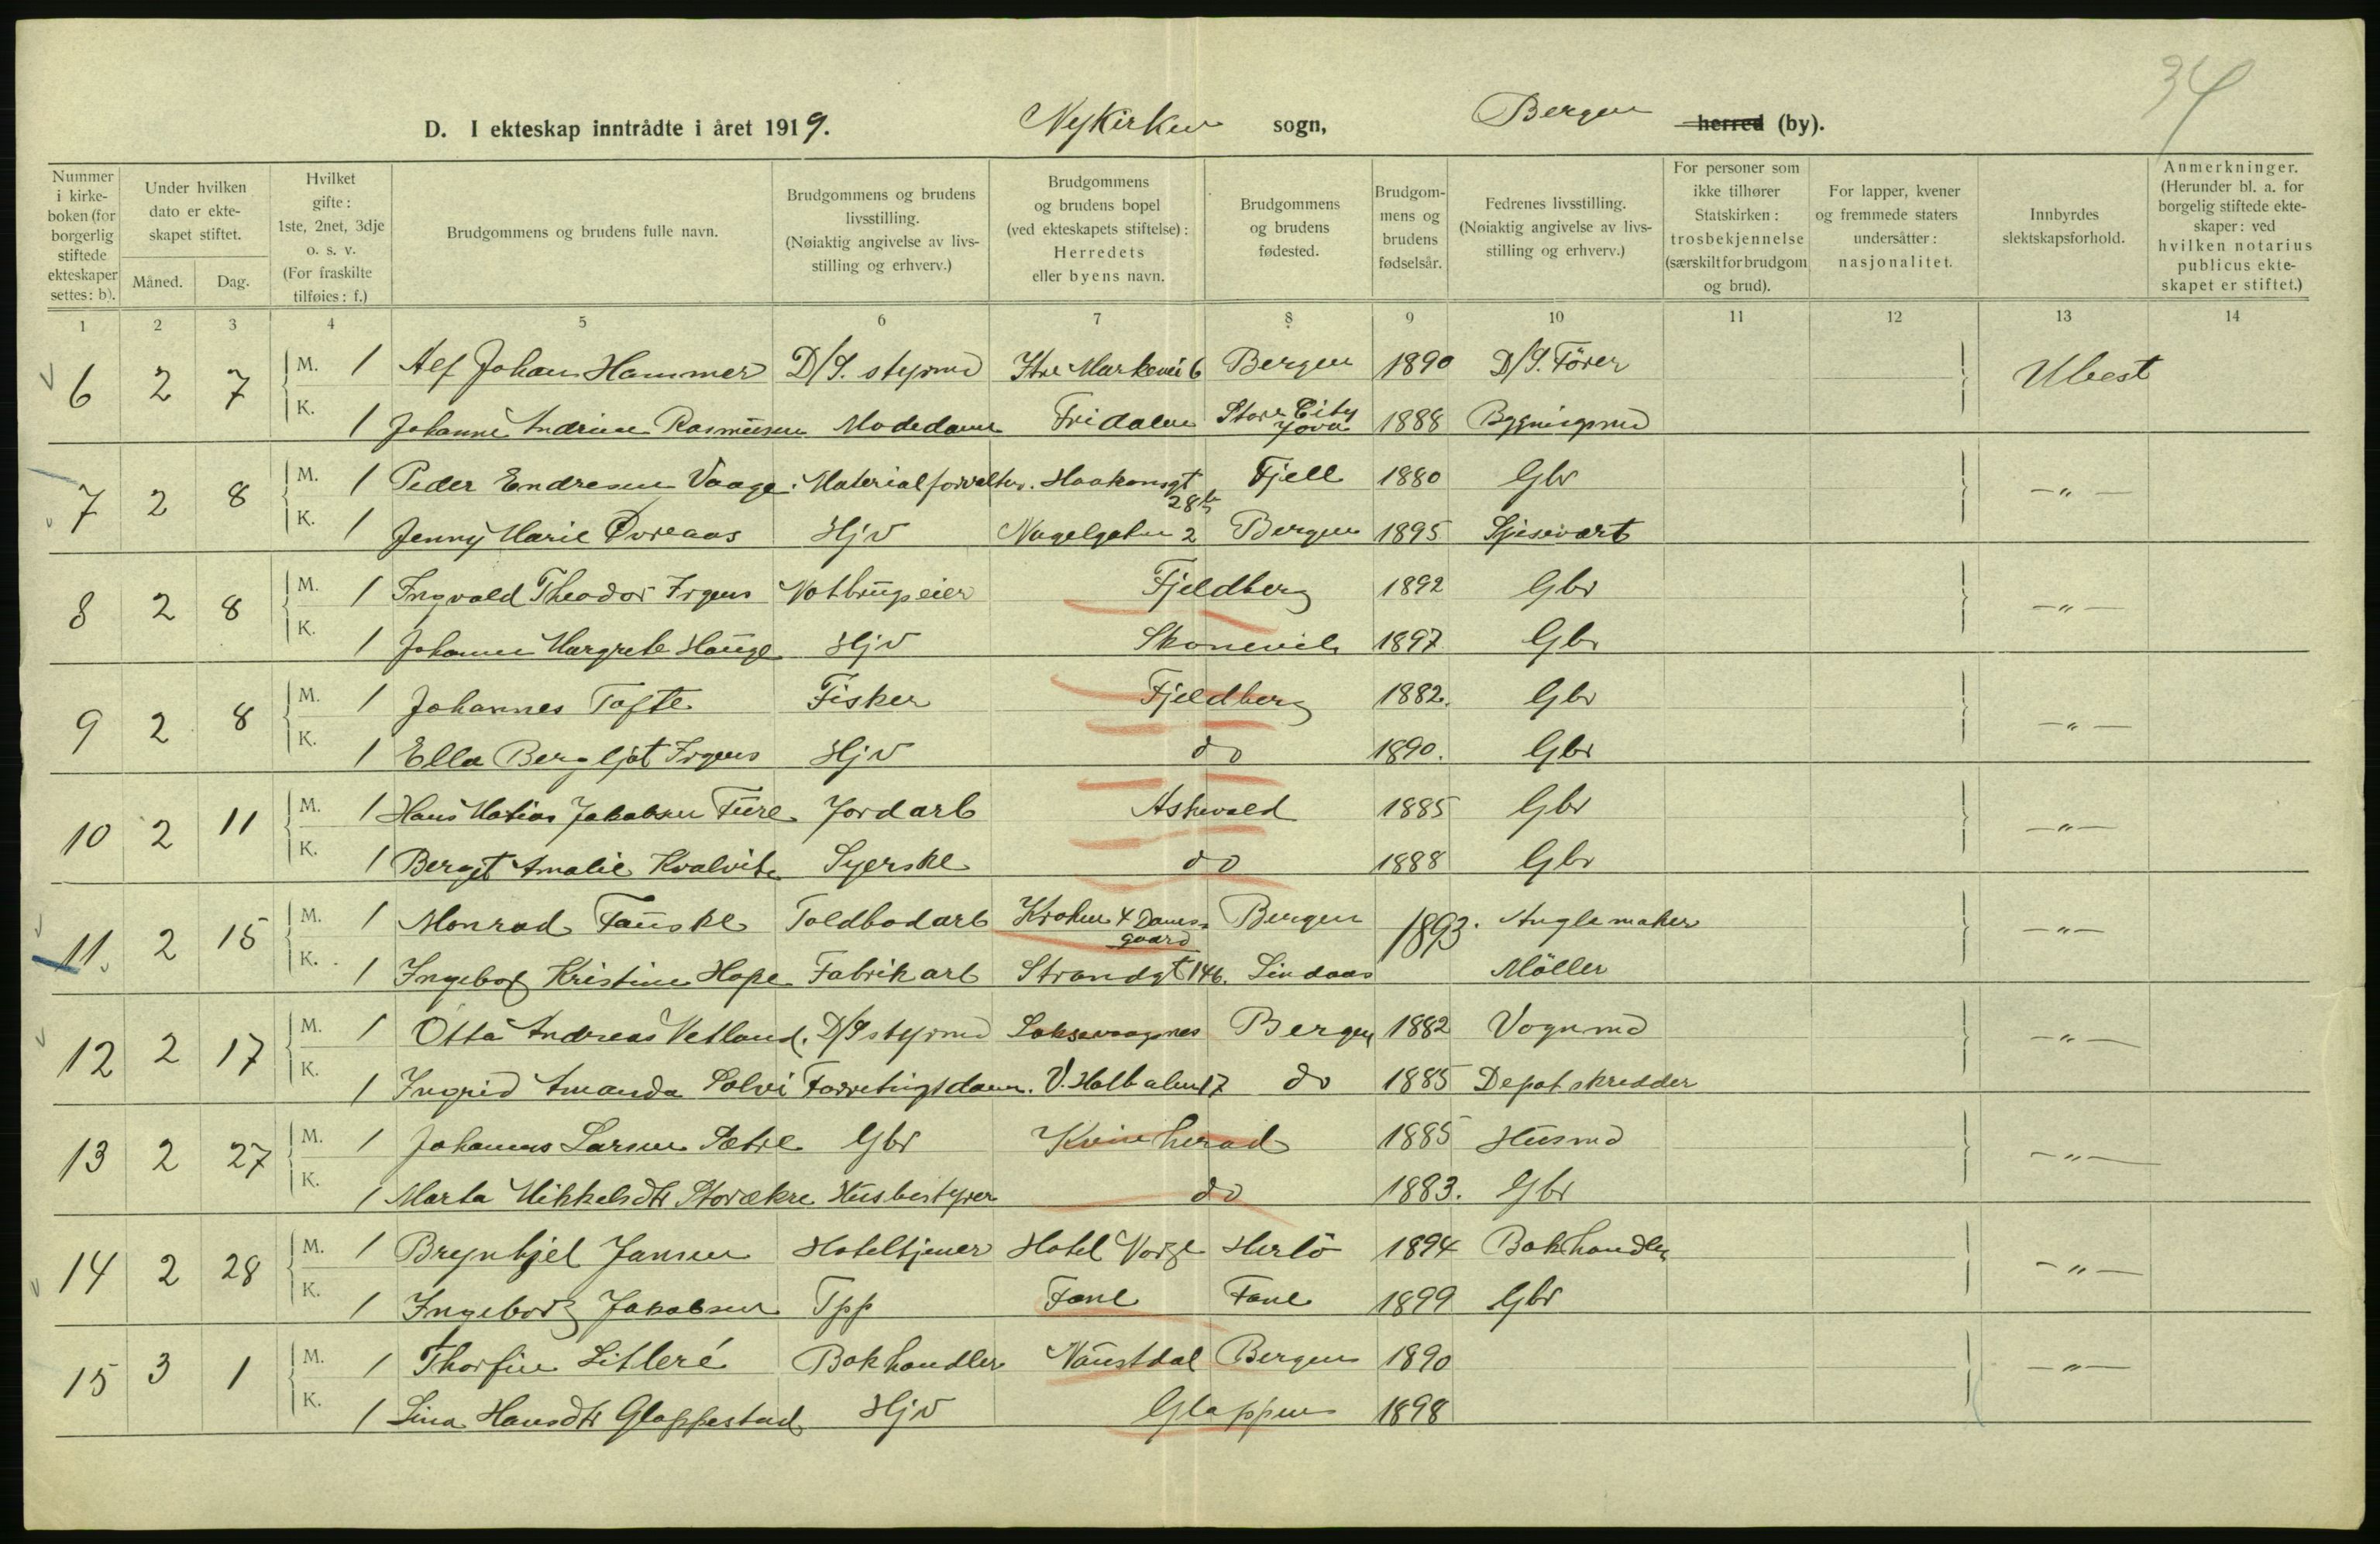 34
D. I ekteskap inntrådte i året 1919. Nykirken sogn, Bergen herred (by).
Nummer i kirkeboken (for borgerlig stiftede ekteskaper settes: b).
Under hvilken dato er ekteskapet stiftet.
Måned. Dag.
Hvilket gifte: 1ste, 2net, 3dje o. s. v. (For fraskilte tilføies: f.)
Brudgommens og brudens fulle navn.
Brudgommens og brudens livsstilling. (Nøiaktig angivelse av livsstilling og erhverv.)
Brudgommens og brudens bopel (ved ekteskapets stiftelse): Herredets eller byens navn.
Brudgommens og brudens fødested.
Brudgommens og brudens fødselsår.
Fedrenes livsstilling. (Nøiaktig angivelse av livsstilling og erhverv.)
For personer som ikke tilhører Statskirken: trosbekjennelse (særskilt for brudgom og brud).
For lapper, kvener og fremmede staters undersåtter: nasjonalitet.
Innbyrdes slektskapsforhold.
Anmerkninger. (Herunder bl. a. for borgelig stiftede ekteskaper: ved hvilken notarius publicus ekteskapet er stiftet.)
1 2 3 4 5 6 7 8 9 10 11 12 13 14
6 2 7 M. 1 Alf Johan Hammer D/S. styrmd Ytre Markevei 6 Bergen 1890 D/S. Förer Ubest
K. 1 Johanne Andrine Rasmüsen Modedame Fridalen Store City Iova 1888 Bygningsmd
7 2 8 M. 1 Peder Endresen Vaage Materialforvalter. Haakonsgt 28b Fjell 1880 Gbr -"-
K. 1 Jenny Marie Överaas Hjv Nagelgaten 2 Bergen 1895 Spisevært
8 2 8 M. 1 Ingvald Theodor Irgens Notbrugseier Fjeldberg 1892 Gbr -"-
K. 1 Johanne Margrete Hauge Hjv Skonevik 1897 Gbr
9 2 8 M. 1 Johannes Tofte Fisker Fjeldberg 1882. Gbr -"-
K. 1 Ella Bergljot Irgens Hjv do 1890. Gbr
10 2 11 M. 1 Hans Matias Jakobsen Füre Jordarb Askvold 1885 Gbr -"-
K. 1 Bergit Amalie Kvalvik Syerske do 1888 Gbr
11. 2 15 M. 1 Monrad Fauske Toldbodarb Krohn 4 Damsgaard Bergen 1893. Anglemaker -"-
K. 1 Ingeborg Kristine Hope Fabrikarb Strandgt 146. Lindaas Möller
12 2 17 M. 1 Otto Andreas Vetland. D/S styrmd Laksevaagnes Bergen 1882 Vognmd -"-
K. 1 Ingrid Amanda Solvi Forretingsdame. V. Holbalm 17 do 1885 Depotskredder
13 2 27 M. 1 Johannes Larsen Sætre Gbr Kvinherad 1885 Husmd -"-
K. 1 Marta Mikkelsdtr Storækre Husbestyrer do 1883. Gbr
14 2 28 M. 1 Brynhjel Jansen Hoteltjener Hotel Norge Herlö 1894 Bokhandler -"-
K. 1 Ingeborg Jakobsen Tpp Fane Fane 1899 Gbr
15 3 1 M. 1 Thorfin Litleré Bokhandler Naustdal Bergen 1890 -"-
K. 1 Lina Hansdtr Gloppestad Hjv Gloppen 1898